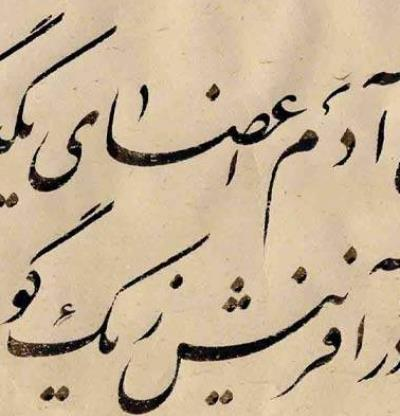 آدم اعضای
در آفرینش ز یک